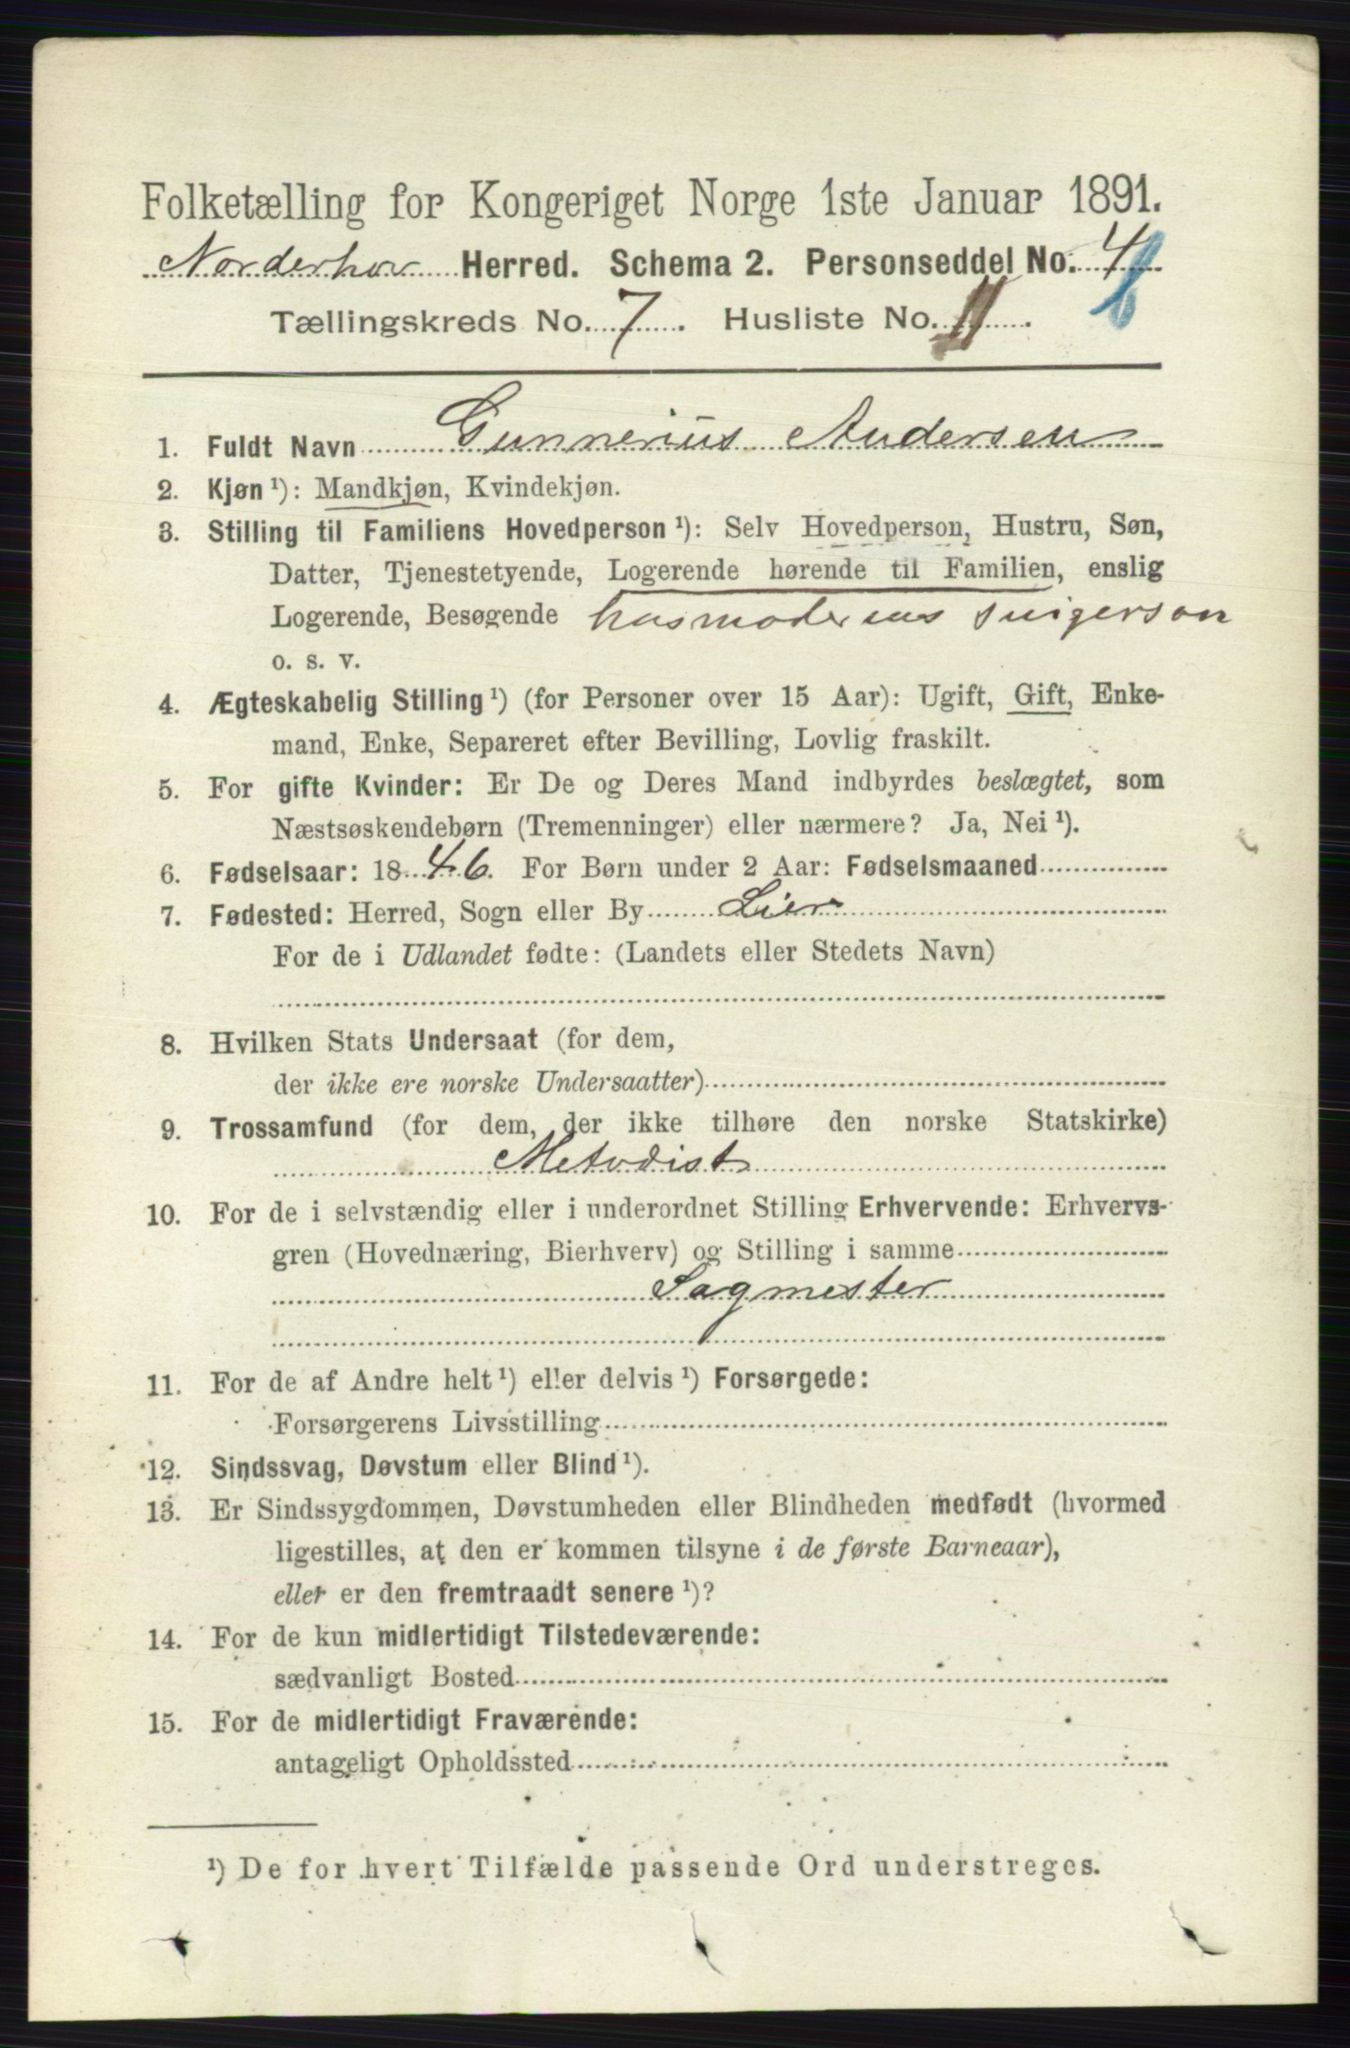 Folketælling for Kongeriget Norge 1ste Januar 1891.
Norderhov Herred. Schema 2. Personseddel No. 4
Tællingskreds No. 7. Husliste No. 11.
1. Fuldt Navn Gunnerius Andersen
2. Kjøn ¹): Mandkjøn, Kvindekjøn.
3. Stilling til Familiens Hovedperson ¹): Selv Hovedperson, Hustru, Søn,
Datter, Tjenestetyende, Logerende hørende til Familien, enslig
Logerende, Besøgende husmoderens svigerson
o. s. v.
4. Ægteskabelig Stilling ¹) (for Personer over 15 Aar): Ugift, Gift, Enke-
mand, Enke, Separeret efter Bevilling, Lovlig fraskilt.
5. For gifte Kvinder: Er De og Deres Mand indbyrdes beslægtet, som
Næstsøskendebørn (Tremenninger) eller nærmere? Ja, Nei ¹).
6. Fødselsaar: 1846. For Børn under 2 Aar: Fødselsmaaned
7. Fødested: Herred, Sogn eller By Lier
For de i Udlandet fødte: (Landets eller Stedets Navn)
8. Hvilken Stats Undersaat (for dem,
der ikke ere norske Undersaatter)
9. Trossamfund (for dem, der ikke tilhøre den norske Statskirke)
Metodist
10. For de i selvstændig eller i underordnet Stilling Erhvervende: Erhvervs-
gren (Hovednæring, Bierhverv) og Stilling i samme
Sagmester
11. For de af Andre helt ¹) eller delvis ¹) Forsørgede:
Forsørgerens Livsstilling
12. Sindssvag, Døvstum eller Blind ¹).
13. Er Sindssygdommen, Døvstumheden eller Blindheden medfødt (hvormed
ligestilles, at den er kommen tilsyne i de første Barneaar),
eller er den fremtraadt senere ¹)?
14. For de kun midlertidigt Tilstedeværende:
sædvanligt Bosted
15. For de midlertidigt Fraværende:
antageligt Opholdssted
¹) De for hvert Tilfælde passende Ord understreges.